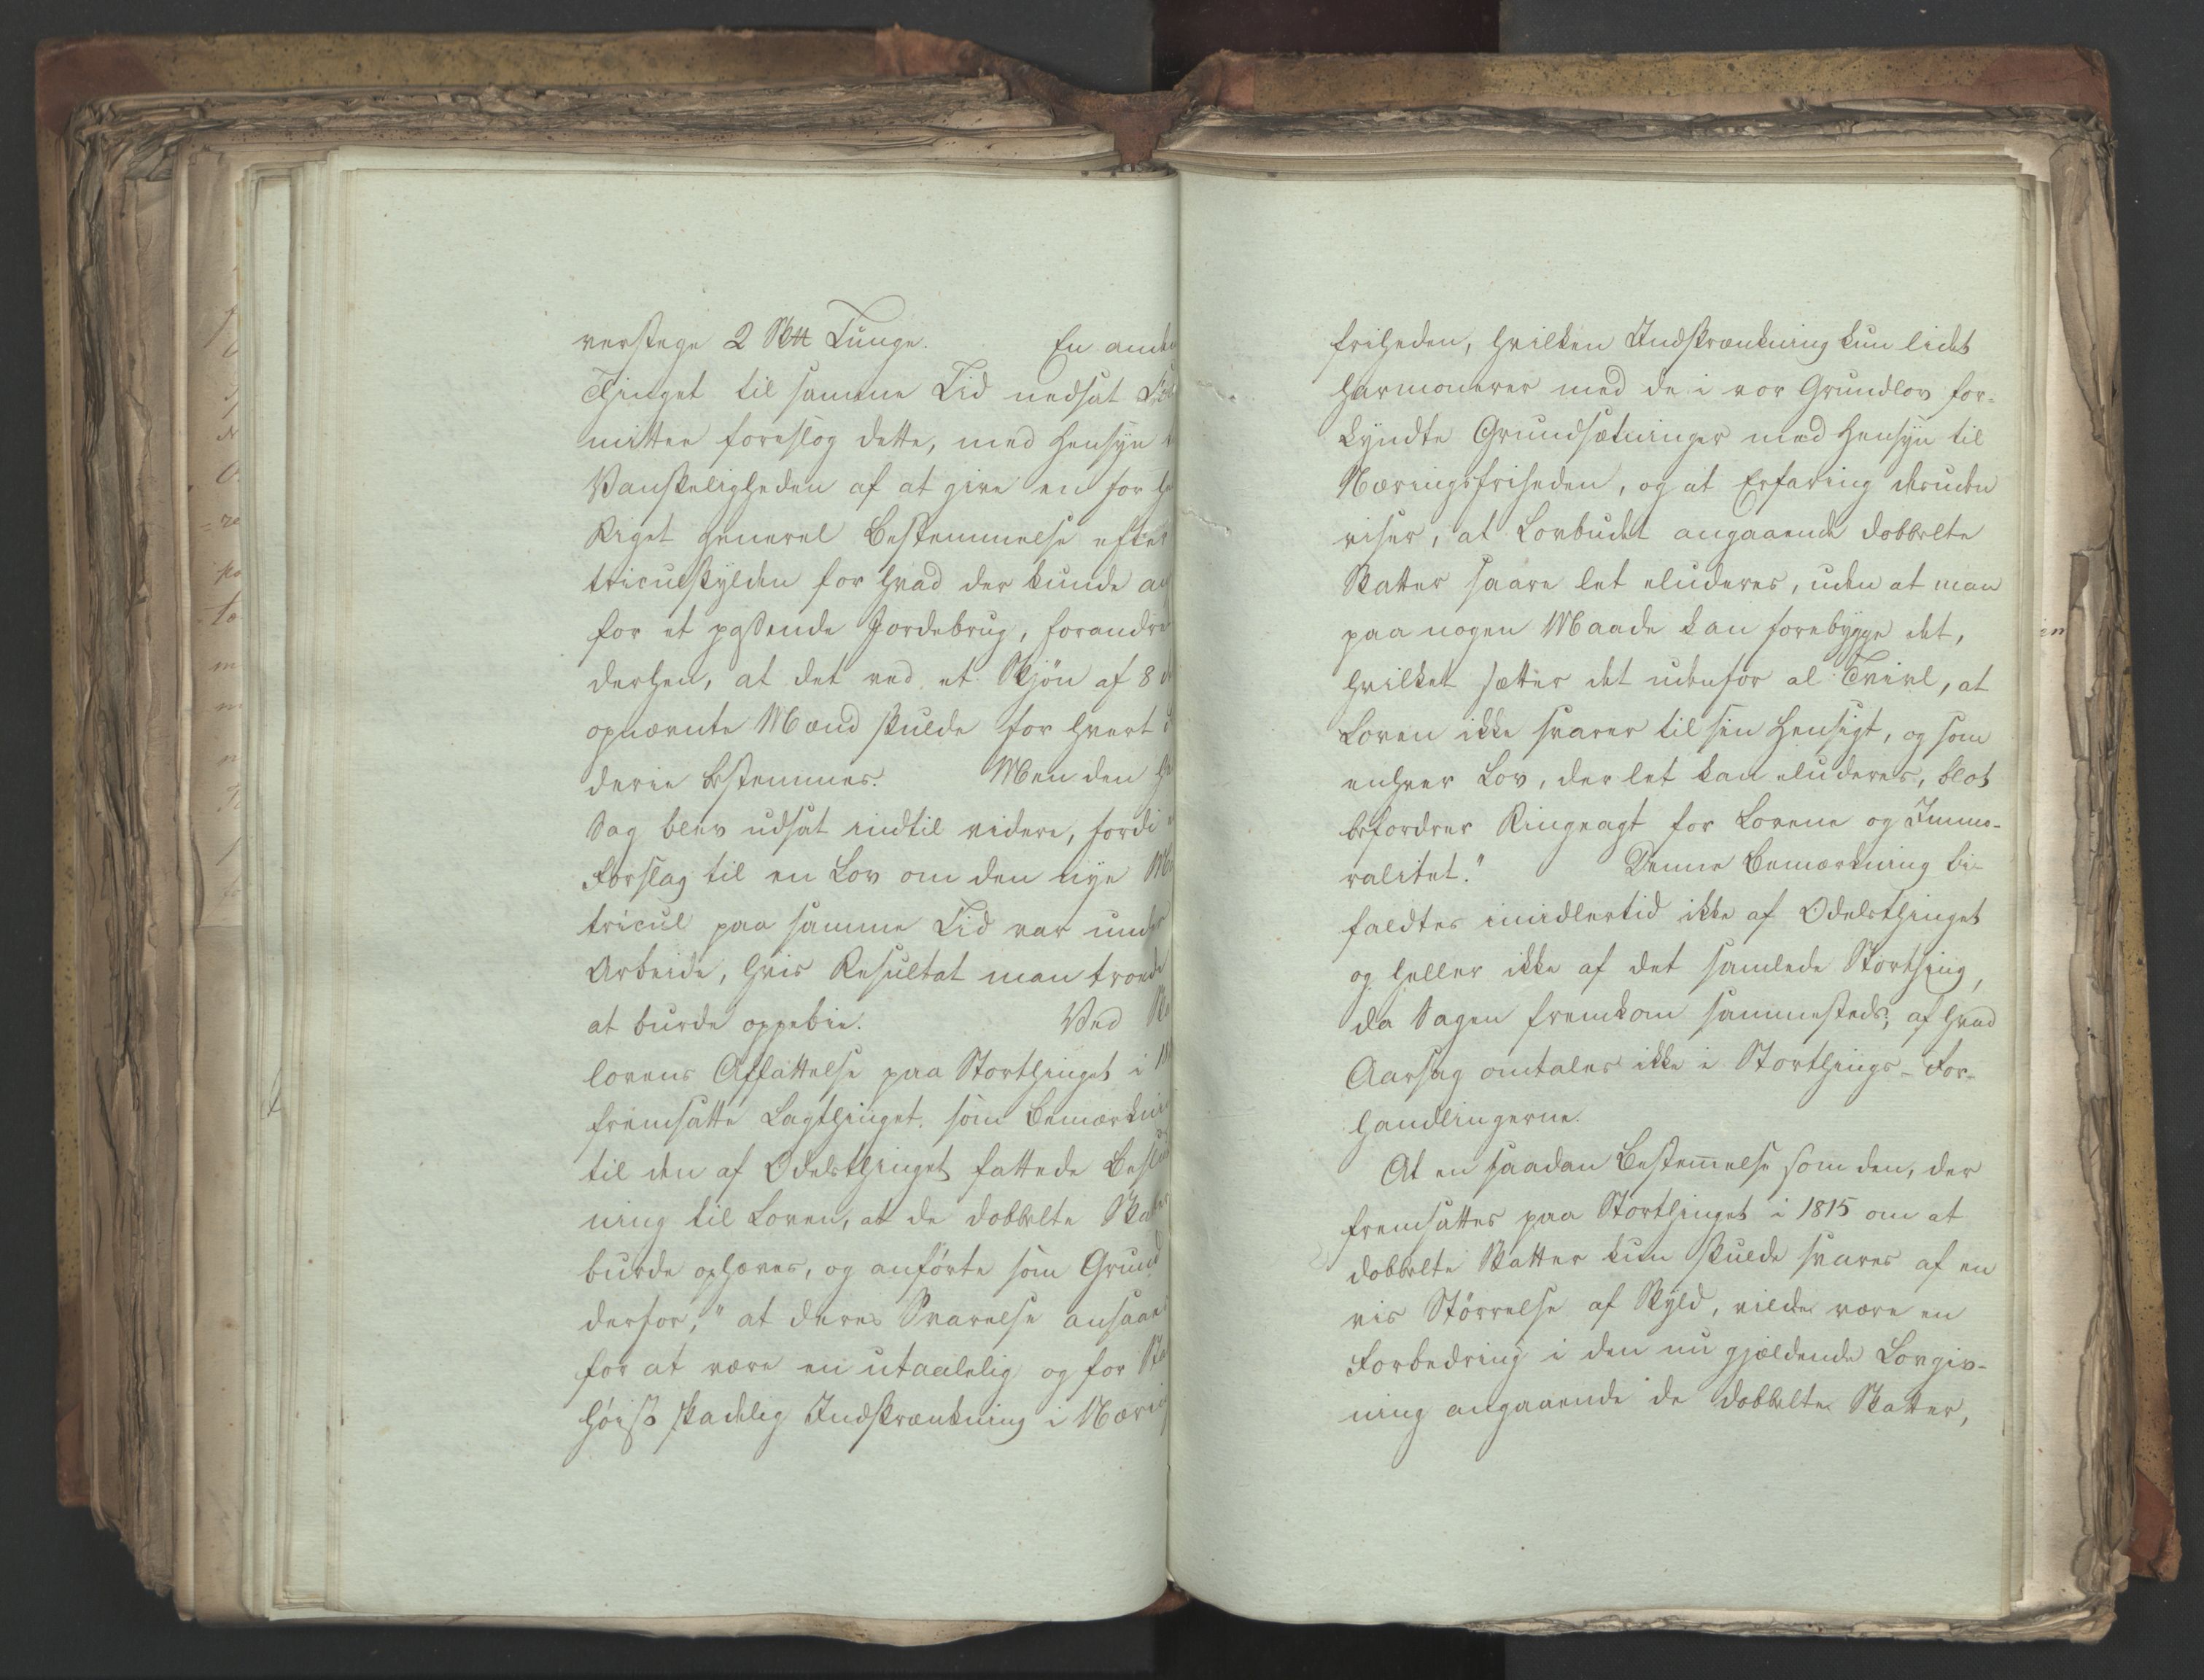 verstege 2 Sktt Tunge. En anden
Thinget til samme Tid nedsat
mittee foreslog dette, med Hensyn
Vanskeligheden af at give en for
Riget General Bestemmelse efter
triculskylden for hvad der kunde
for et passende Jordebrug, forandret
derhen, at det ved et Skjön af 8
opnævnte Mænd skulde for hvert
derie bestemmes. Men den
Sag blev udsat indtil videre, fordi
Forslag til en Lov om den nye Ma
tricul paa samme Tid var under
Arbeide, hvis Resultat man troede
at burde oppebie. Ved
lovens Affattelse paa Storthinget i 18
fremsatte Lagthinget som Bemærkning
til den af Odelsthinget fattede Beslut
ning til Loven, at de dobbelte Skatter
burde ophæves, og anførte som Grund
derfor, "at deres Svarelse ansaaes
for at være en utaalelig og for
höist skadelig Indskrænkning i Nærings
friheden, hvilken Indskrænkning kun lidet
harmonerer med de i vor Grundlov for-
kyndte Grundsætninger med Hensyn til
Næringsfriheden, og at Erfaring desuden
viser, at Lovbudet angaaende dobbelte
Skatter saare let eluderes, uden at man
paa nogen Maade kan forebygge det,
hvilket sætter det udenfor al Tvivl, at
Loven ikke svarer til sin Hensigt, og som
enhver Lov, der let kan eluderes, blot
befordrer Ringeagt for Lovene og Immo-
ralitet." Denne Bemærkning bi-
faldtes imidlertid ikke af Odelsthinget
og heller ikke af det samlede Storthing,
da Sagen fremkom sammesteds; af hvad
Aarsag omtales ikke i Storthings-For-
handlingerne.
At en saadan Bestem̄else som den, der
fremsattes paa Storthinget i 1815 om at
dobbelte Skatter kun skulde svares af en
vis Störrelse af Skyld, vilde være en
Forbedring i den nu gjældende Lovgiv-
ning angaaende de dobbelte Skatter,